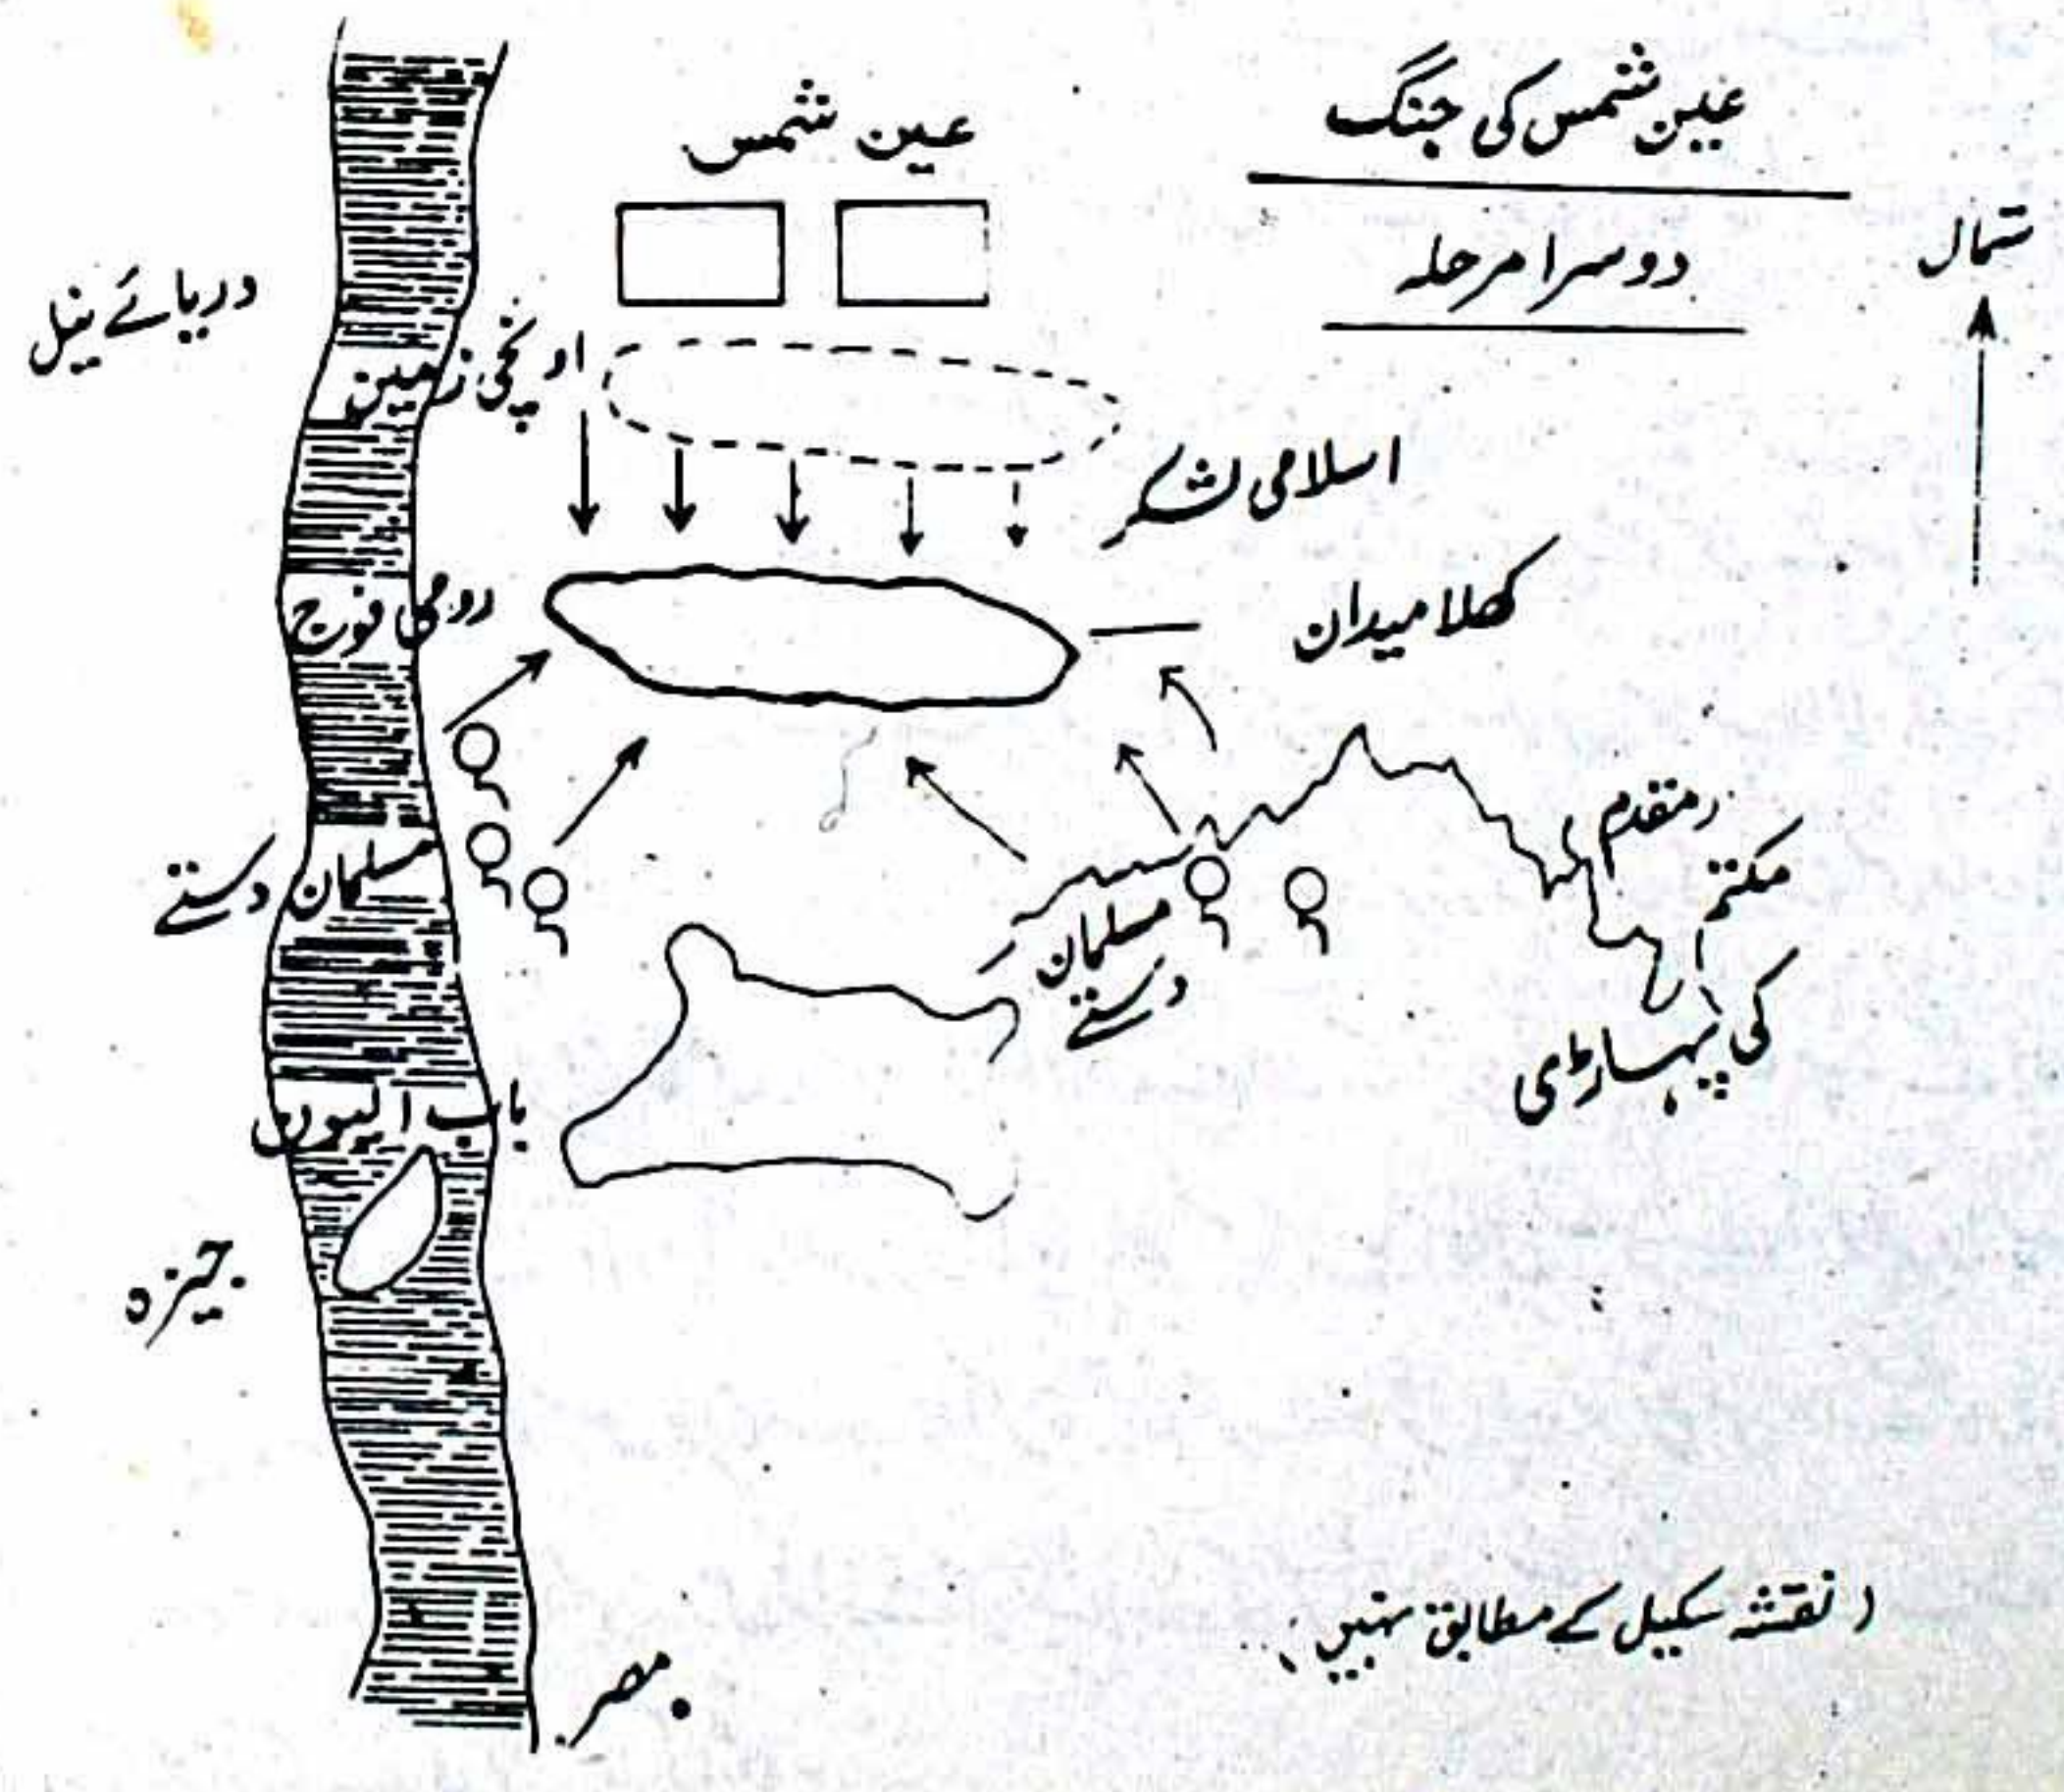 عین شمس کی جنگ
عین شمس
دوسرا مرحلہ
شمال
دریائے نیل
اونچی زمین
اسلامی لشکر
رومی فوج
کھلا میدان
مسلمان دستے
مسلمان
دستے
(مقدم
کی پہاڑی
باب الیون
جیزہ
مصر
(نقشہ سکیل کے مطابق نہیں)